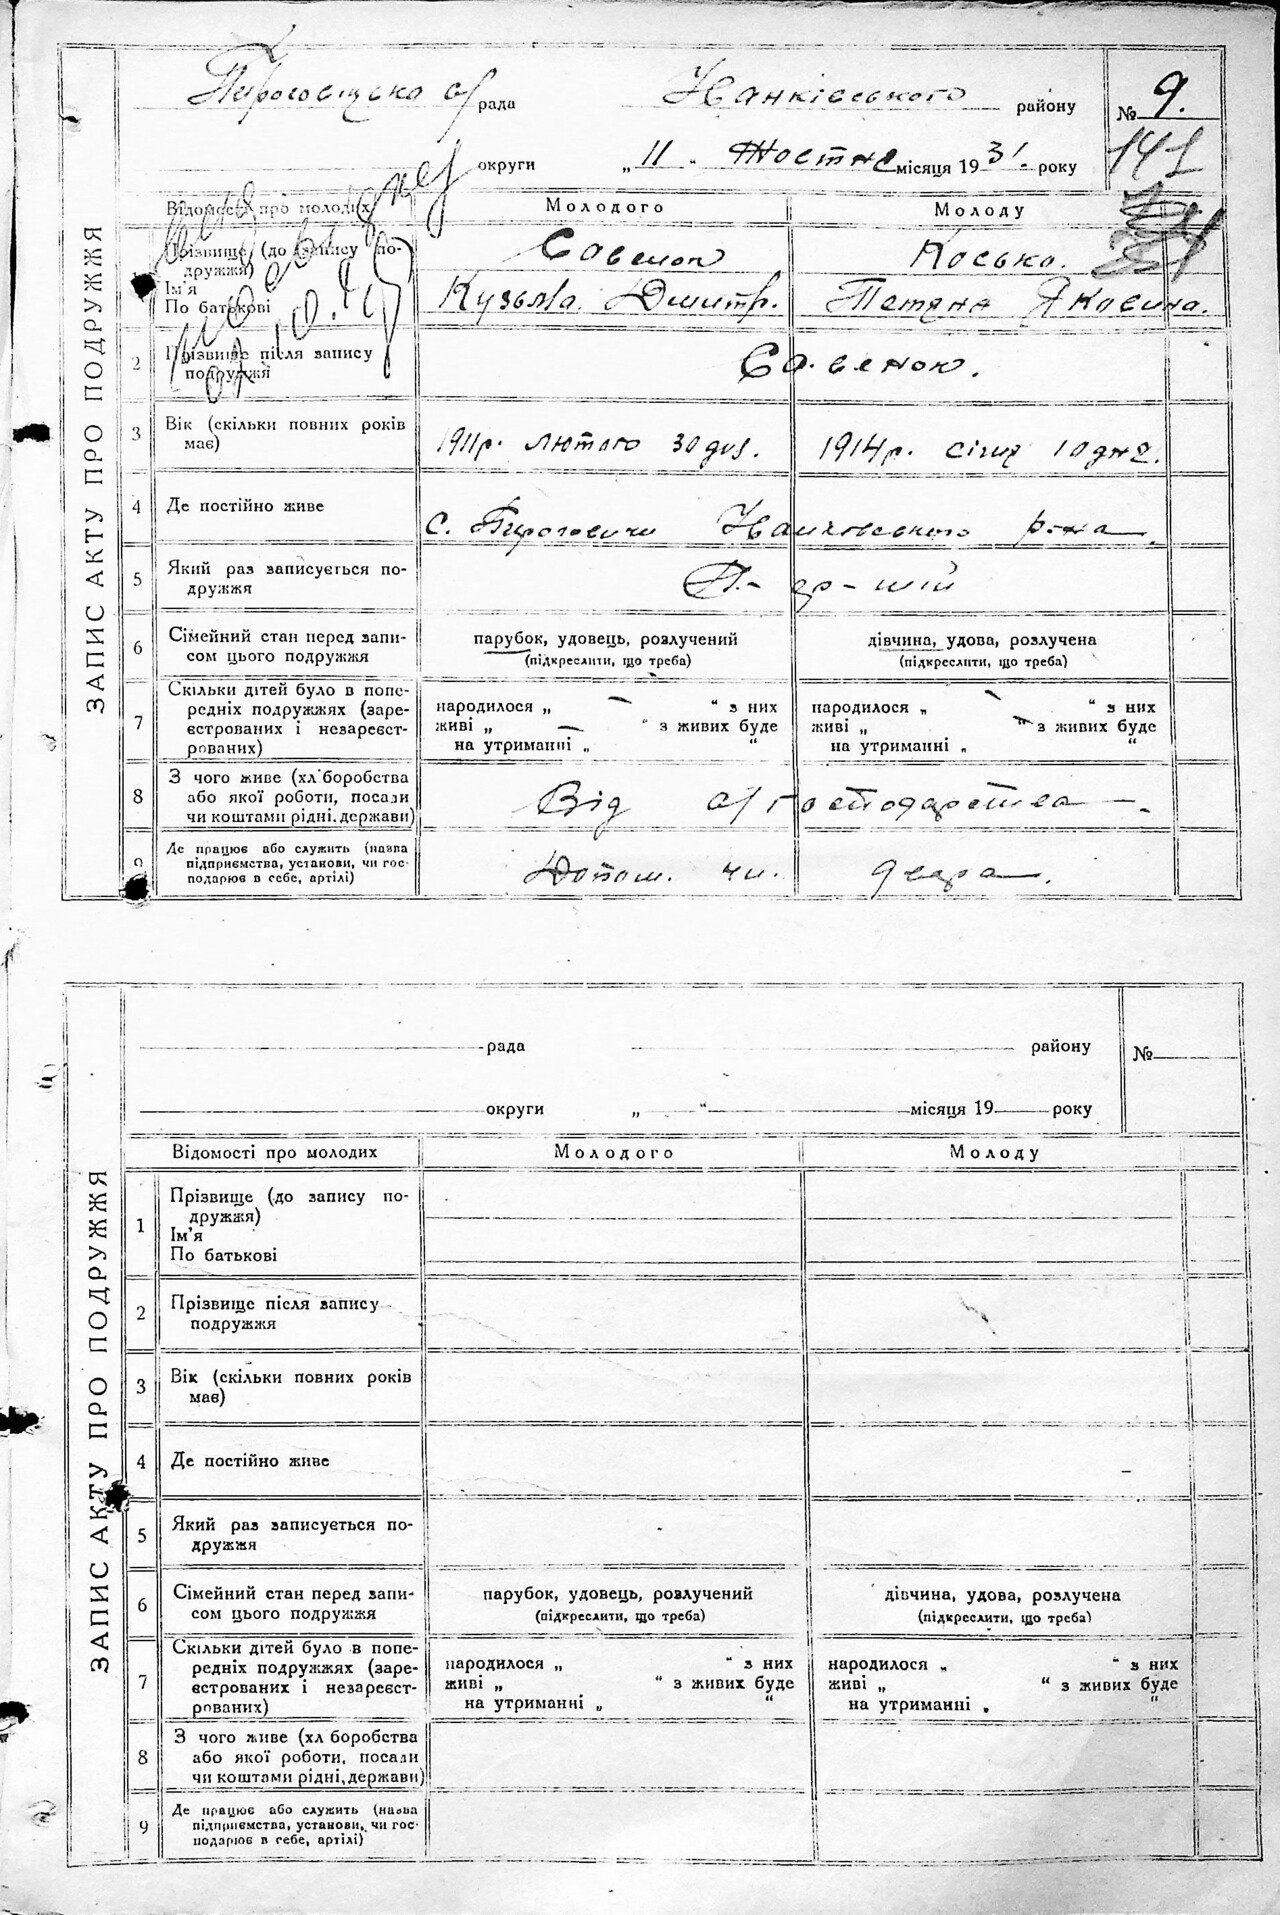 ЗАПИС АКТУ ПРО ПОДРУЖЖЯ
рада Іванківського району № 9.
округи „ 11 „ Жостня місяця 1931. року 141
Відомості про молодих Молодого Молоду
1 Прізвище (до запису подружжя) Савенок Коська.
Ім'я
По батькові Кузьма. Дмитр. Тетяна Яковина.
2 Прізвище після запису
подружжя Савенок.
3 Вік (скільки повних років
має) 1911р. лютого 30 дня. 1914р. січня 10 дня.
4 Де постійно живе
с. Пироговичи Іванковського р-на
5 Який раз записується по-
дружжя П-ер-ший
6 Сімейний стан перед запи-
сом цього подружжя
парубок, удовець, розлучений дівчина, удова, розлучена
(підкреслити, що треба) (підкреслити, що треба)
7 Скільки дітей було в попе-
редніх подружжях (заре-
єстрованих і незареєст-
рованих)
народилося „ — “ з них народилося „ — “ з них
живі „ — “ з живих буде живі „ — “ з живих буде
на утриманні „ “ на утриманні „ “
8 З чого живе (хл боробства
або якої роботи, посади
чи коштами рідні, держави)
Від с/господарства
9 Де працює або служить (назва
підприємства, установи, чи гос-
подарює в себе, артілі)
двора.
ЗАПИС АКТУ ПРО ПОДРУЖЖЯ
рада району №
округи „ “ місяця 19 року
Відомості про молодих Молодого Молоду
1 Прізвище (до запису по-
дружжя)
Ім'я
По батькові
2 Прізвище після запису
подружжя
3 Вік (скільки повних років
має)
4 Де постійно живе
5 Який раз записується по-
дружжя
6 Сімейний стан перед запи-
сом цього подружжя
парубок, удовець, розлучений дівчина, удова, розлучена
(підкреслити, що треба) (підкреслити, що треба)
7 Скільки дітей було в попе-
редніх подружжях (заре-
єстрованих і незареєст-
рованих)
народилося „ “ з них народилося „ “ з них
живі „ “ з живих буде живі „ “ з живих буде
на утриманні „ “ на утриманні „ “
8 З чого живе (хл боробства
або якої роботи, посади
чи коштами рідні, держави)
9 Де працює або служить (назва
підприємства, установи, чи гос-
подарює в себе, артілі)